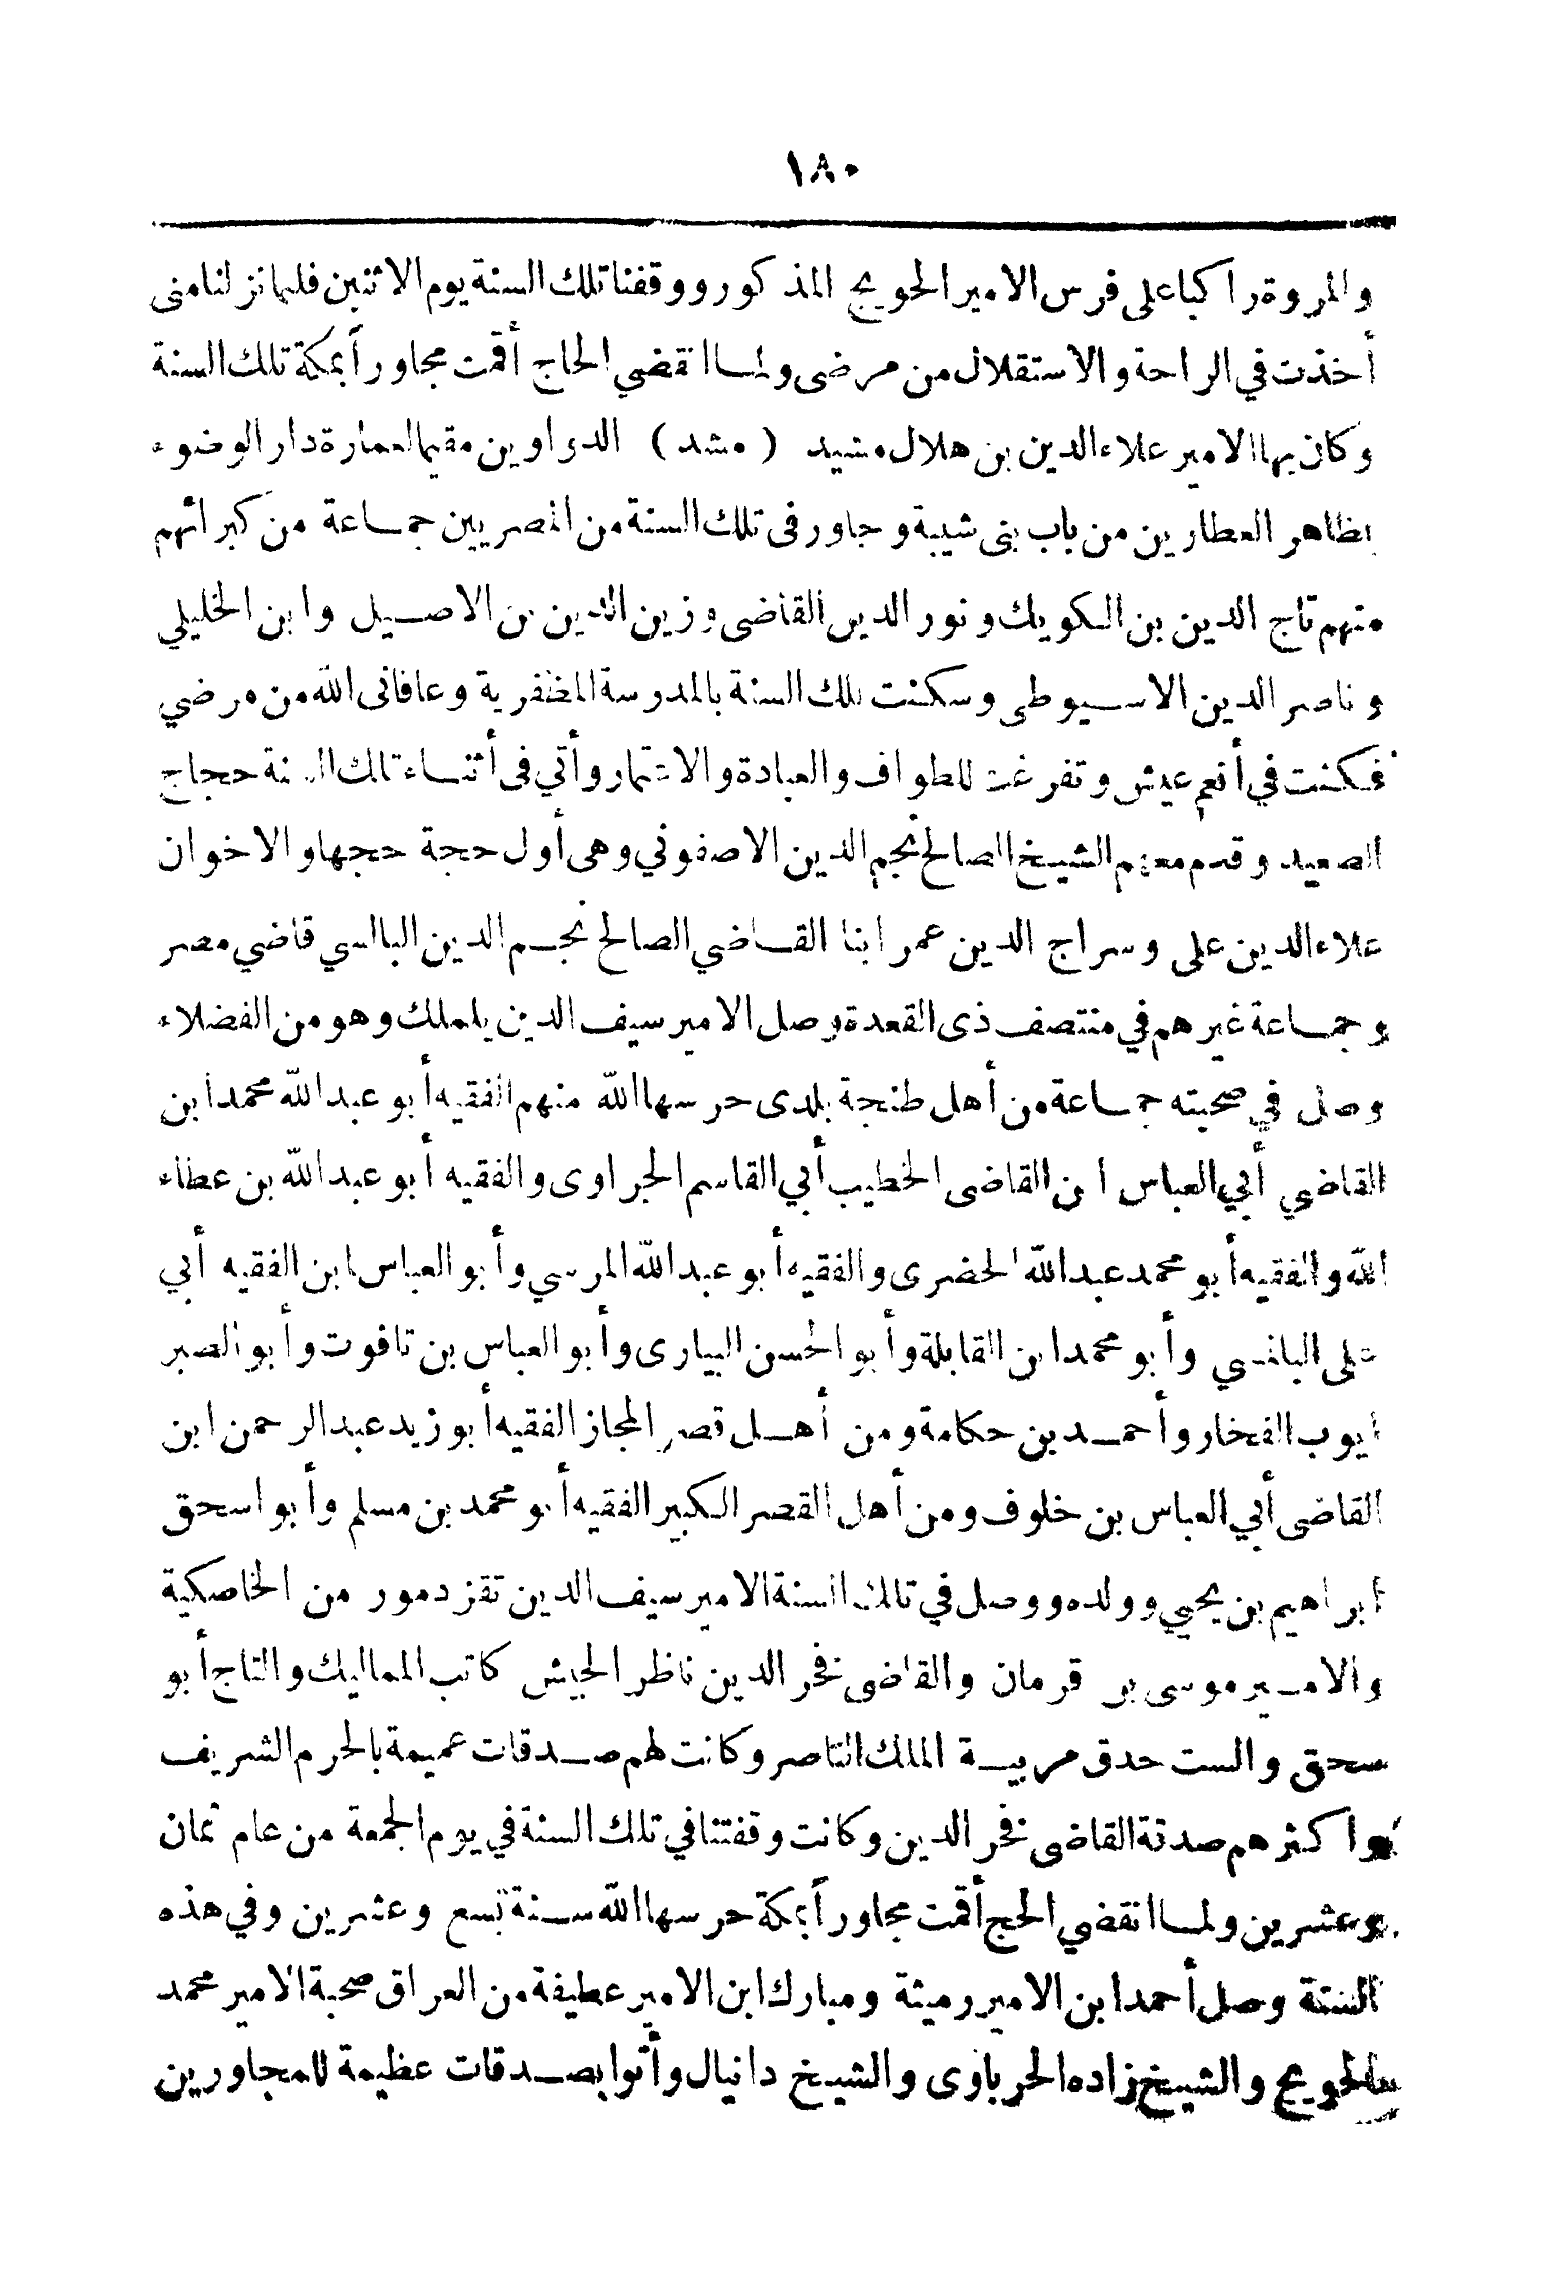 ١٨٠
والمروة راكبا على فرس الامير الحويج المذكور ووقفنا تلك السنة يوم الاثنين فلما نزلنا منى
أخذت في الراحة والاستقلال من مرضى ولما انقضي الحاج أقمت مجاوراً بمكة تلك السنة
وكان بها الامير علاء الدين بن هلال مشيد ( مشد ) الدواوين مقيما لعمارة دار الوضوء
بظاهر العطارين من باب بنى شيبة وجاور فى تلك السنة من المصريين جماعة من كبرائهم
منهم تاج الدين بن الكويك ونور الدين القاضى وزين الدين بن الاصيل وابن الخليلي
وناصر الدين الاسيوطى وسكنت تلك السنة بالمدرسة المظفرية وعافانى الله من مرضي
فكنت في أنعم عيش وتفرغت للطواف والعبادة والاعتمار وأتي فى أثناء تلك السنة حجاج
الصعيد وقدم معهم الشيخ الصالح نجم الدين الاصفوني وهى أول حجة حجها والاخوان
علاء الدين على وسراج الدين عمر ابنا القاضي الصالح نجم الدين البالسي قاضي مصر
وجماعة غيرهم في منتصف ذى القعدة وصل الامير سيف الدين يلملك وهو من الفضلاء
وصل في صحبته جماعة من أهل طنجة بلدى حرسها الله منهم الفقيه أبو عبد الله محمد ابن
القاضي أبي العباس ابن القاضى الخطيب أبي القاسم الجراوى والفقيه أبو عبد الله بن عطاء
الله والفقيه أبو محمد عبد الله الحضرى والفقيه أبو عبد الله المرسي وأبو العباس ابن الفقيه أبي
على البلنسي وأبو محمد ابن القابلة وأبو الحسن البيارى وأبو العباس بن تافوت وأبو الصبر
ايوب الفخار وأحمد بن حكامة ومن أهل قصر المجاز الفقيه أبو زيد عبد الرحمن ابن
القاضى أبي العباس بن خلوف ومن أهل القصر الكبير الفقيه أبو محمد بن مسلم وأبو اسحق
ابراهيم بن يحيي وولده ووصل في تلك السنة الامير سيف الدين تقزدمور من الخاصكية
والامير موسى بن قرمان والقاضى فخر الدين ناظر الجيش كاتب المماليك والتاج أبو
سحق والست حدق مربية الملك الناصر وكانت لهم صدقات عميمة بالحرم الشريف
واكثرهم صدقة القاضى فخر الدين وكانت وقفتنا في تلك السنة في يوم الجمعة من عام ثمان
وعشرين ولما انقضي الحج أقمت مجاوراً بمكة حرسها الله سنة تسع وعشرين وفي هذه
السنة وصل أحمد ابن الامير رميثة ومبارك ابن الامير عطيفة من العراق صحبة الامير محمد
الحويج والشيخ زاده الحرباوى والشيخ دانيال وأتوا بصدقات عظيمة للمجاورين